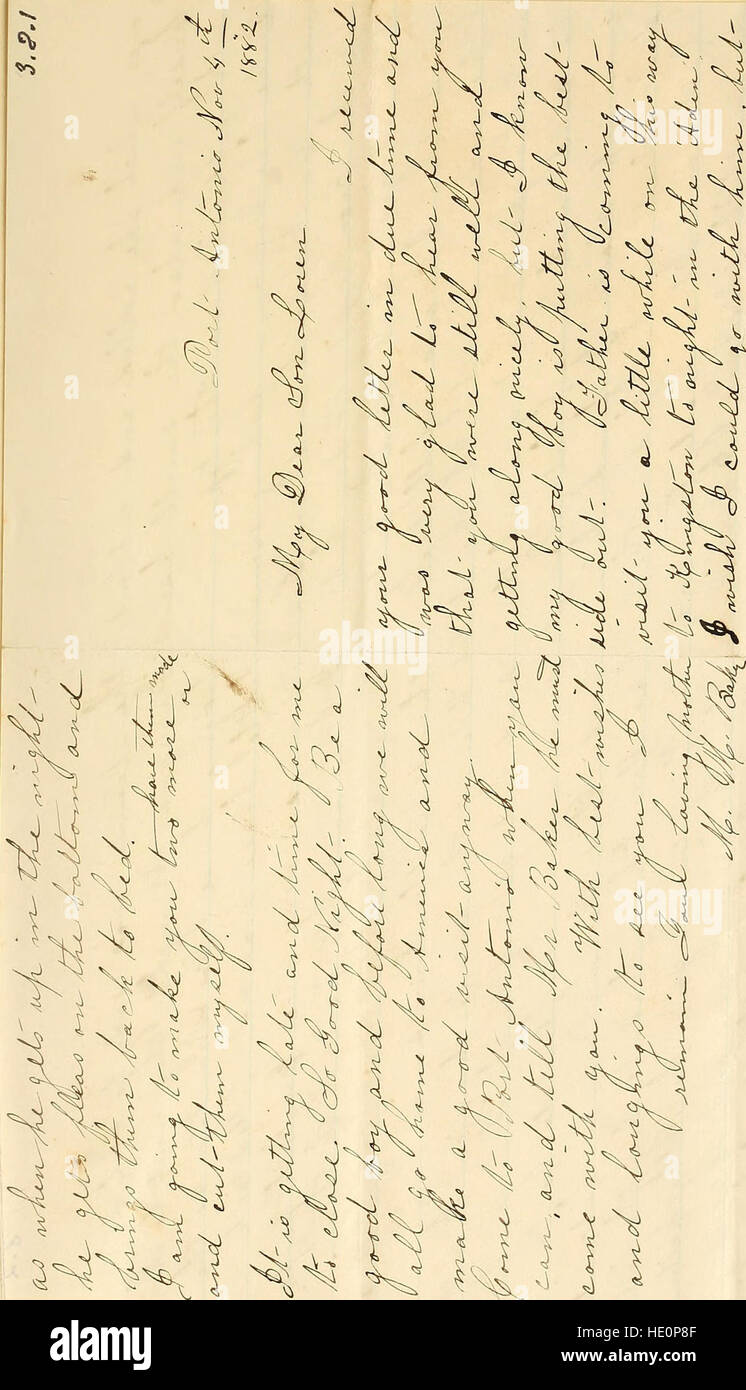 3.2.1
Port Antonio Nov 4th
1882.
My Dear Son Loren
I received
your good letter in due time and
was very glad to hear from you
that you were still well and
getting along nicely, but I know
my good boy is putting the best
side out. Father is coming to
visit you a little while on this way
to Kingston to night in the Aden.
I wish I could go with him, but
as when he gets up in the night
he gets fleas on the bottom and
brings them back to bed.
I am going to make you two more or
have them made
and cut them myself.
It is getting late and time for me
to close. So Good Night. Be a
good boy and before long we will
all go home to America and
make a good visit anyway.
Come to Port Antonio when you
can, and tell Mr Baker he must
come with you. With best wishes
and longings to see you I
remain Your loving mother
M. M. Baker
alamy
Image ID: HE0P8F
www.alamy.com